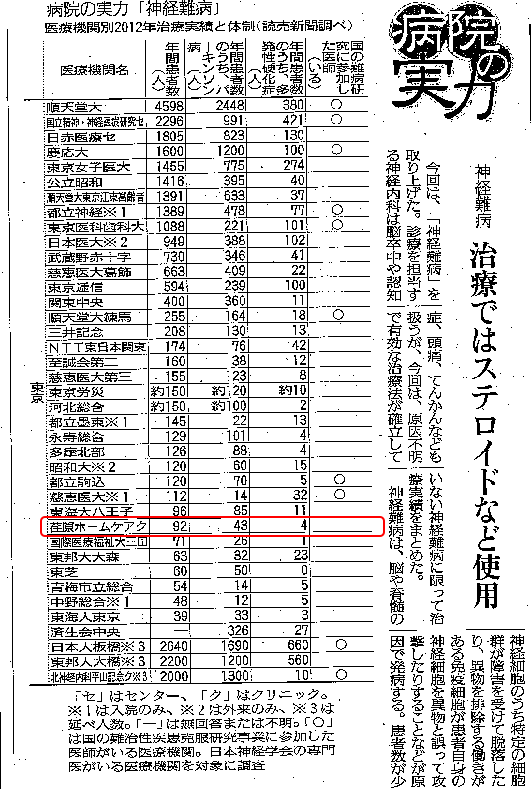 病院の実力「神経難病」
医療機関別2012年治療実績と体制(読売新聞調べ)
医療機関名 年間患者数(人) 年間患者数のうち、パーキンソン病(人) 年間患者数のうち、多発性硬化症(人) 国の難病研究に参加した医師(いる)
東京
順天堂大 4598 2448 380 ○
国立精神・神経医療研究セ 2296 991 421 ○
日赤医療セ 1805 823 130
慶応大 1600 1200 100 ○
東京女子医大 1455 775 274
公立昭和 1416 395 40
順天堂大東京江東高齢者 1391 633 37
都立神経※1 1389 478 77 ○
東京医科歯科大 1088 221 101 ○
日本医大※2 949 388 102
武蔵野赤十字 730 346 41
慈恵医大葛飾 663 409 22
東京逓信 594 239 100
関東中央 400 360 11
順天堂大練馬 255 164 18 ○
三井記念 208 130 13
NTT東日本関東 174 76 42
至誠会第二 160 38 12
慈恵医大第三 155 23 8
東京労災 約150 約120 約10
河北総合 約150 約100 2
都立墨東※1 145 22 13
永寿総合 129 101 4
多摩北部 126 88 4
昭和大※2 120 60 15
都立駒込 120 70 5 ○
慈恵医大※1 112 14 32 ○
東海大八王子 96 85 11
荏原ホームケアク 92 43 4
国際医療福祉大三田 71 26 1
東邦大大森 63 82 23
東芝 60 50 0
青梅市立総合 54 14 5
中野総合※1 48 12 5
東海大東京 39 33 3
済生会中央 ― 326 27
日本大板橋※3 2640 1690 660 ○
東邦大大橋※3 2200 1200 560
北神経内科平山記念ク※3 2000 1300 10 ○
「セ」はセンター、「ク」はクリニック。
※1は入院のみ、※2は外来のみ、※3は
延べ人数。「―」は無回答または不明。「○」
は国の難治性疾患克服研究事業に参加した
医師がいる医療機関。日本神経学会の専門
医がいる医療機関を対象に調査
病院の実力
神経難病
治療ではステロイドなど使用
今回は、「神経難病」を
取り上げた。診療を担当す
る神経内科は脳卒中や認知
症、頭痛、てんかんなども
扱うが、今回は、原因不明
で有効な治療法が確立して
いない神経難病に限って治
療実績をまとめた。
神経難病は、脳や脊髄の
神経細胞のうち特定の細胞
群が障害を受けて脱落した
り、異物を排除する働きが
ある免疫細胞が患者自身の
神経細胞を異物と誤って攻
撃したりすることなどが原
因で発病する。患者数が少